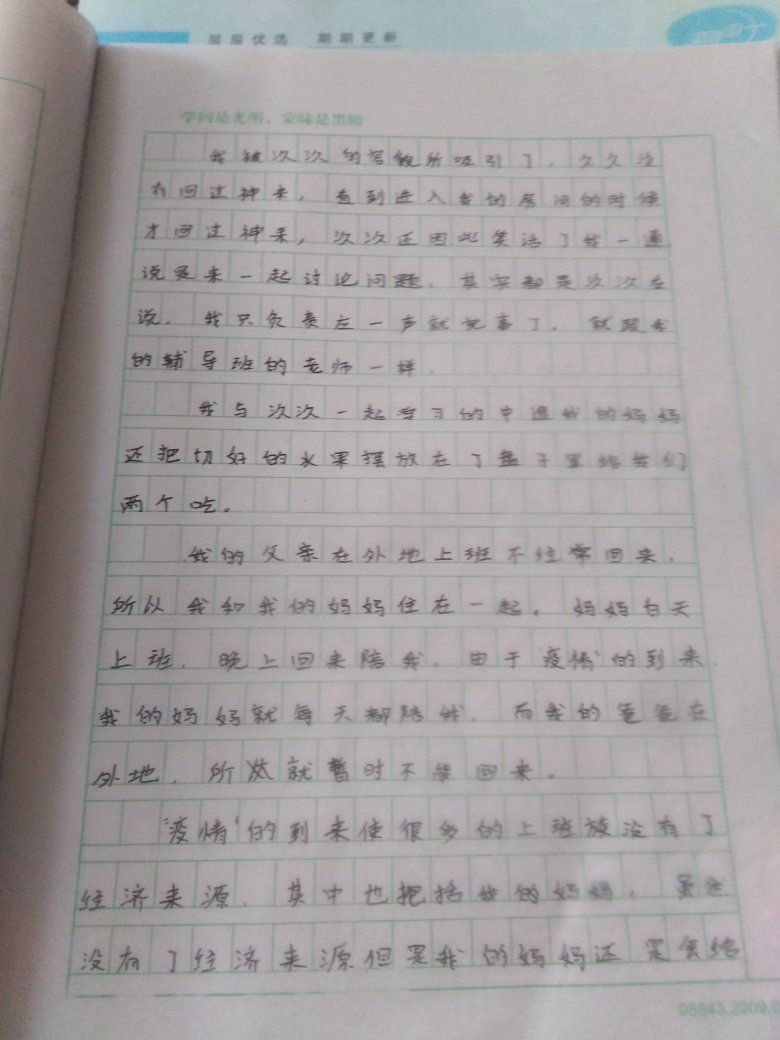 层层优选 期期更新
学问是光明，蒙昧是黑暗
我被次次的容貌所吸引了，久久没
有回过神来，直到进入我的房间的时候
才回过神来，次次还因此笑话了我一通
说是来一起讨论问题，其实都是次次在
说，我只负责应一声就完事了，就跟我
的辅导班的老师一样。
我与次次一起学习的中途我的妈妈
还把切好的水果摆放在了盘子里给我们
两个吃。
我的父亲在外地上班不经常回来，
所以我和我的妈妈住在一起。妈妈白天
上班，晚上回来陪我。由于"疫情"的到来
我的妈妈就每天都陪我，而我的爸爸在
外地，所以就暂时不能回来。
"疫情"的到来使很多的上班族没有了
经济来源，其中也把括我的妈妈，虽然
没有了经济来源但是我的妈妈还是会给
05643.2009.0